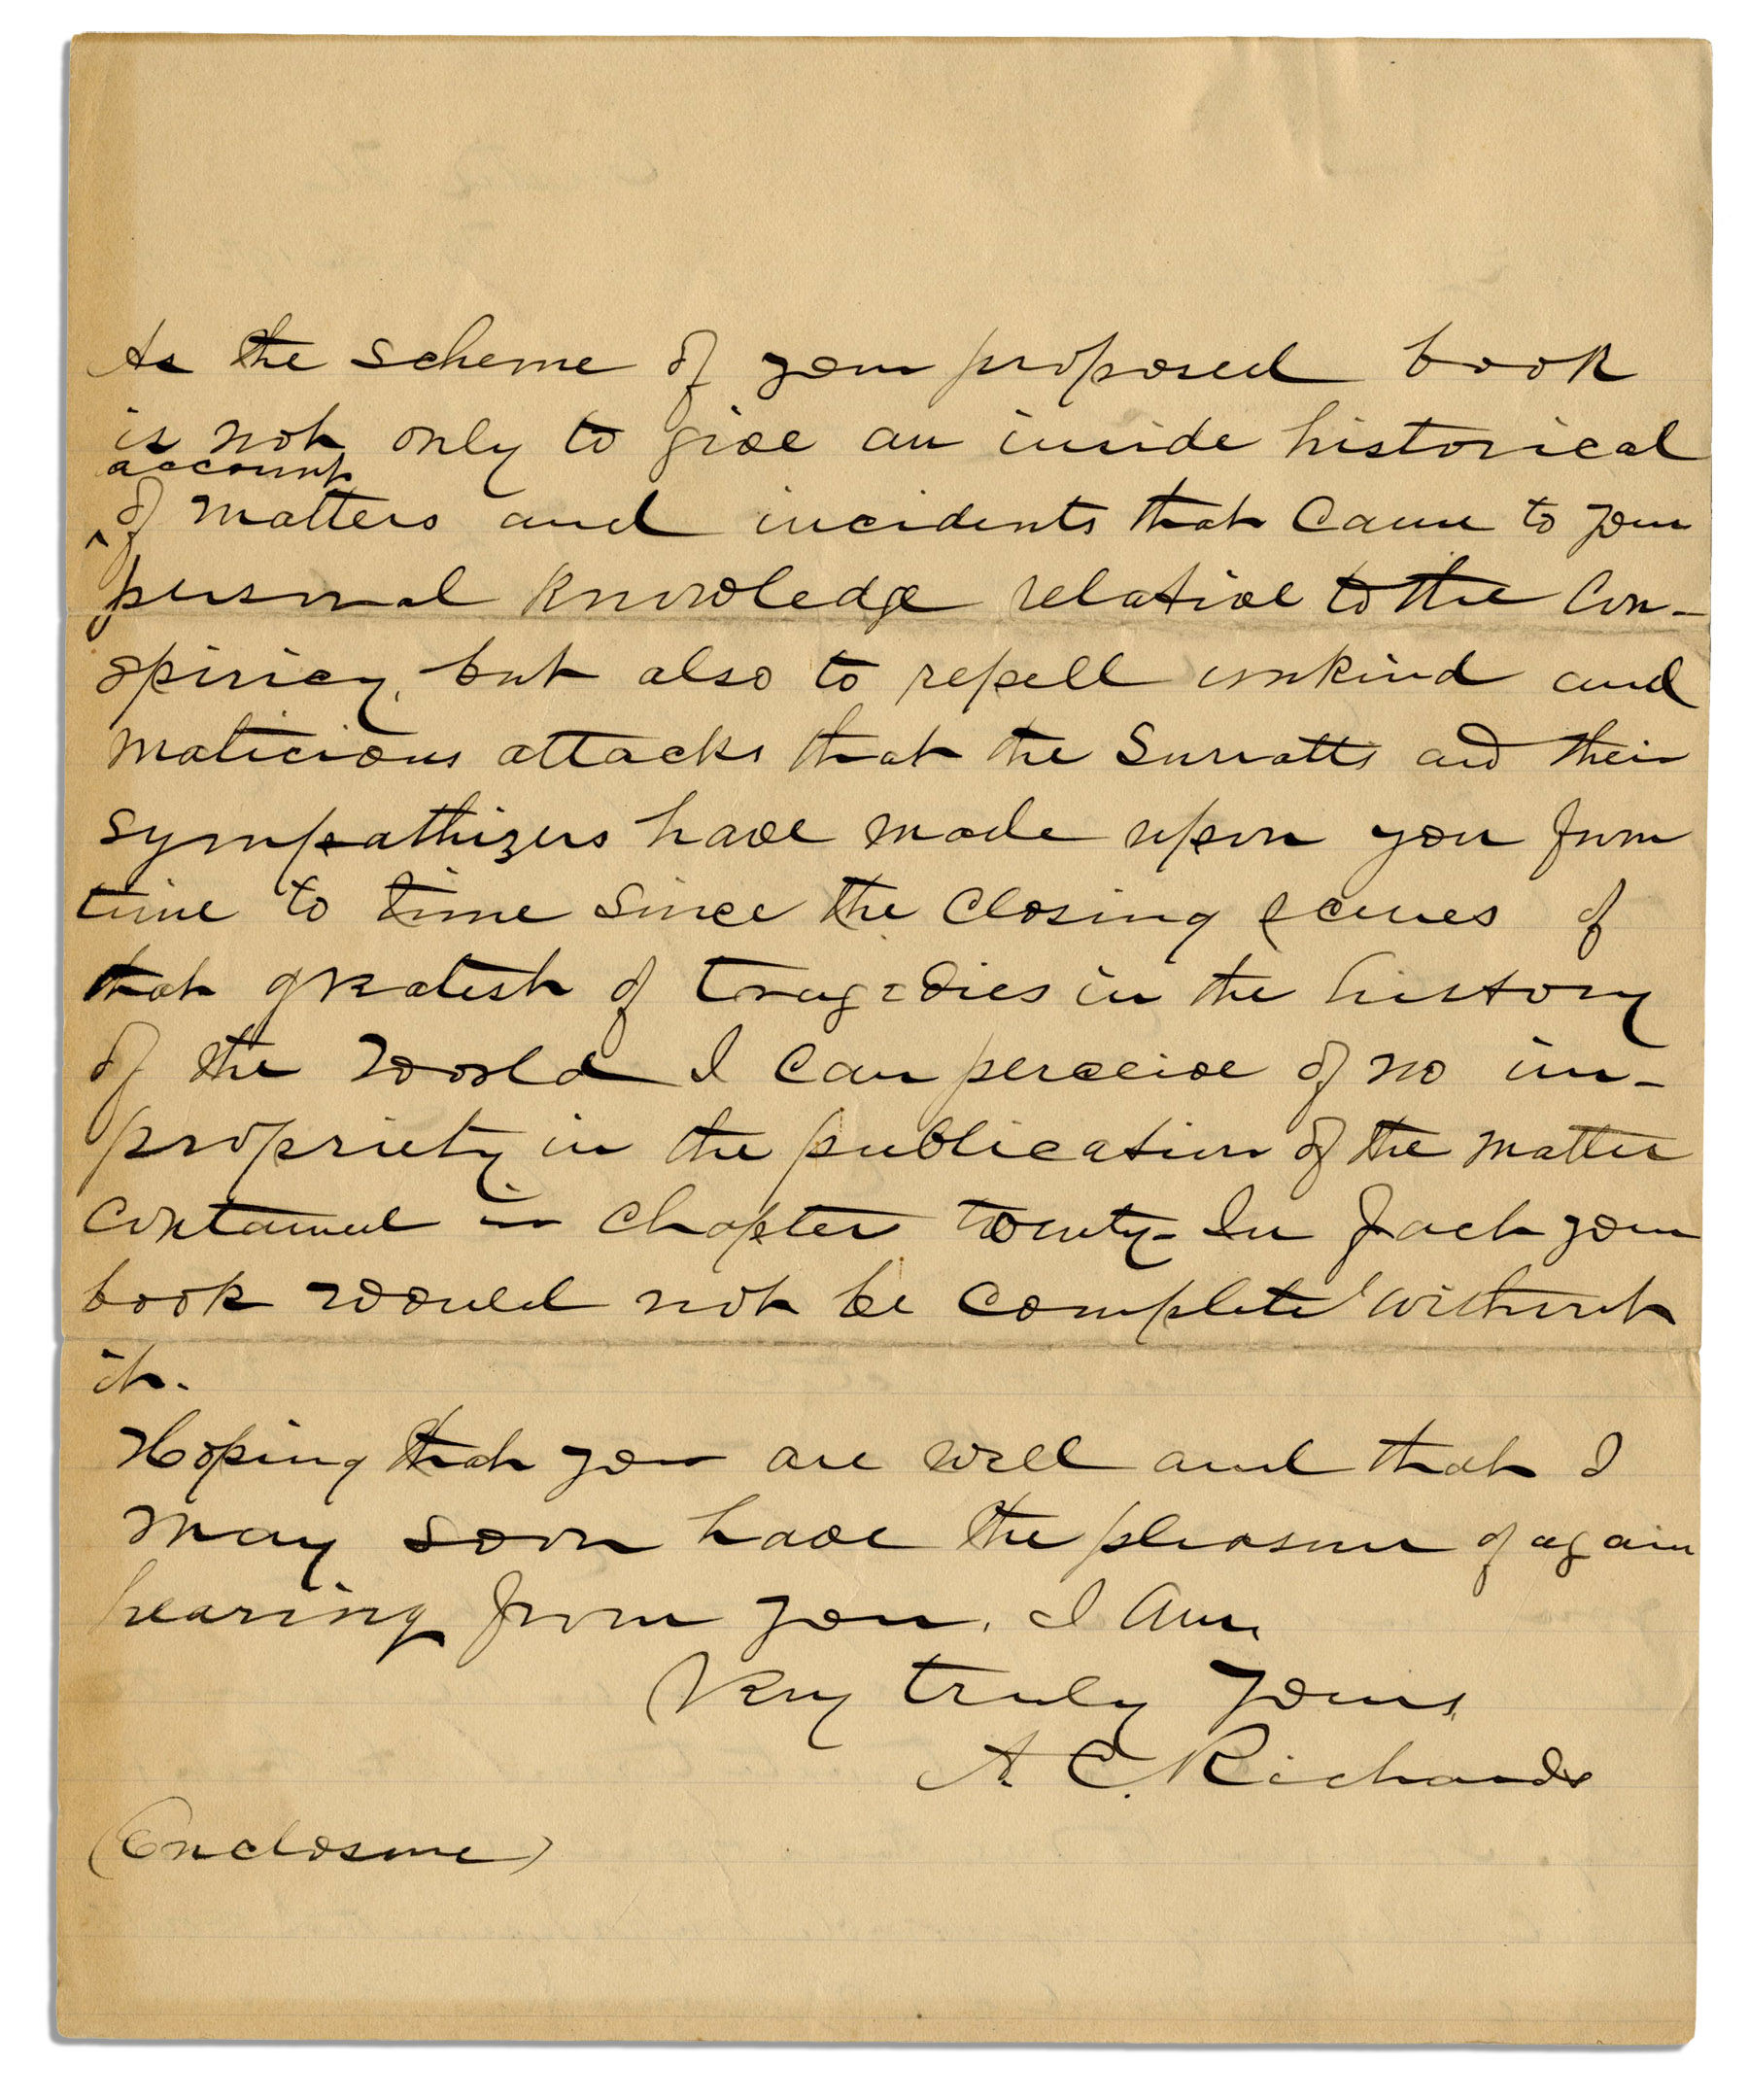 As the scheme of your proposed book
is not only to give an inside historical
account
^ of matters and incidents that came to your
personal knowledge relative to the Con-
spiricy, but also to repell unkind and
malicious attacks that the Surratts and their
sympathizers have made upon you from
time to time since the closing scenes of
that greatest of tragedies in the history
of the world I can perceive of no im-
propriety in the publication of the matter
contained in chapter twenty- In fact your
book would not be complete without
it.
Hoping that you are well and that I
may soon have the pleasure of again
hearing from you, I am,
Very truly yours,
A. C. Richards
(Enclosure)